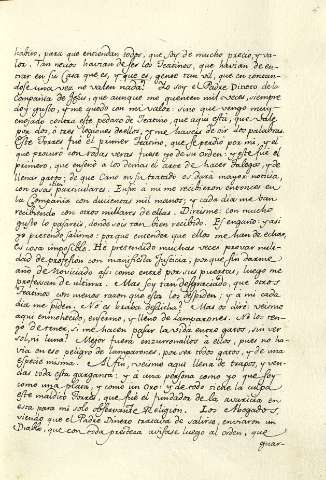 habiro, para que entiendan todos, que soy de mucho precio, y va-
lor. Tan necios havian de ser los Teatinos, que havian de en-
trar en su Casa que es, y que es, gente tan vil, que en conocien-
dose una vez no valen nada? Yo soy el Padre Dinero de la
Compañia de Jesus, que aunque me quenten mil veces, siempre
doy gusto, y me quedo con mi valor: sino que vengo muy
enojado contra este pedazo de Teatino, que aqui está, que vale
por dos, ò tres legiones de ellos, y me haveis de oir dos palabras.
Este Torres fué el primer Teatino, que se perdio por mi, y el
que procuro con todas veras fuese yo de su orden: y este fué el
primero, que enseño à los demas el arte de hacer dallos, y de
llenar gatos; de que Cano en su tratado os dará mayor noticia,
con cosas bien particulares. Enfin à mi me recibieron entonces en
la Compañia con ducientas mil manos; y cada dia me van
recibiendo con otros millares de ellas. Direisme: con mucho
gusto lo pasareis, donde sois tan bien recibido. Es engaño: y asi
yo pretendo salirme: porque entender que ellos me han de echar,
es cosa imposible. He pretendido muchas veces provar nuli-
dad de profesion con manifiesta Justicia, porque sin darme
año de Noviciado asi como entré por sus puertas, luego me
profesaron de ultima. Mas soy tan desgraciado, que otros
Teatinos con menos razon que esta los despiden; y à mi cada
dia me piden. No es brava desdicha? Mas os diré: veisme
aqui enmohecido, enfermo, y lleno de lamparones. No lo ten-
go de tener, si me hacen pasar la vida entre gatos, sin ver
sol, ni luna? Mejor fuera enzurronallos à ellos, pues no ha-
via en eso peligro de lamparones, por ser todos gatos, y de una
especie misma. Al fin, veisme aqui llena de trapos, y ven-
das toda esta garganta; y à una persona como yo que soy
como una plata, y como un oro: y de todo tiene la culpa
este maldito Torres, que fué el fundador de la avaricia en
esta para mi solo observante Religion. Los Abogados,
viendo que el Padre Dinero tratava de salirse, enviaron un
Diablo, que con toda presteza avisase luego al orden, que
guar-